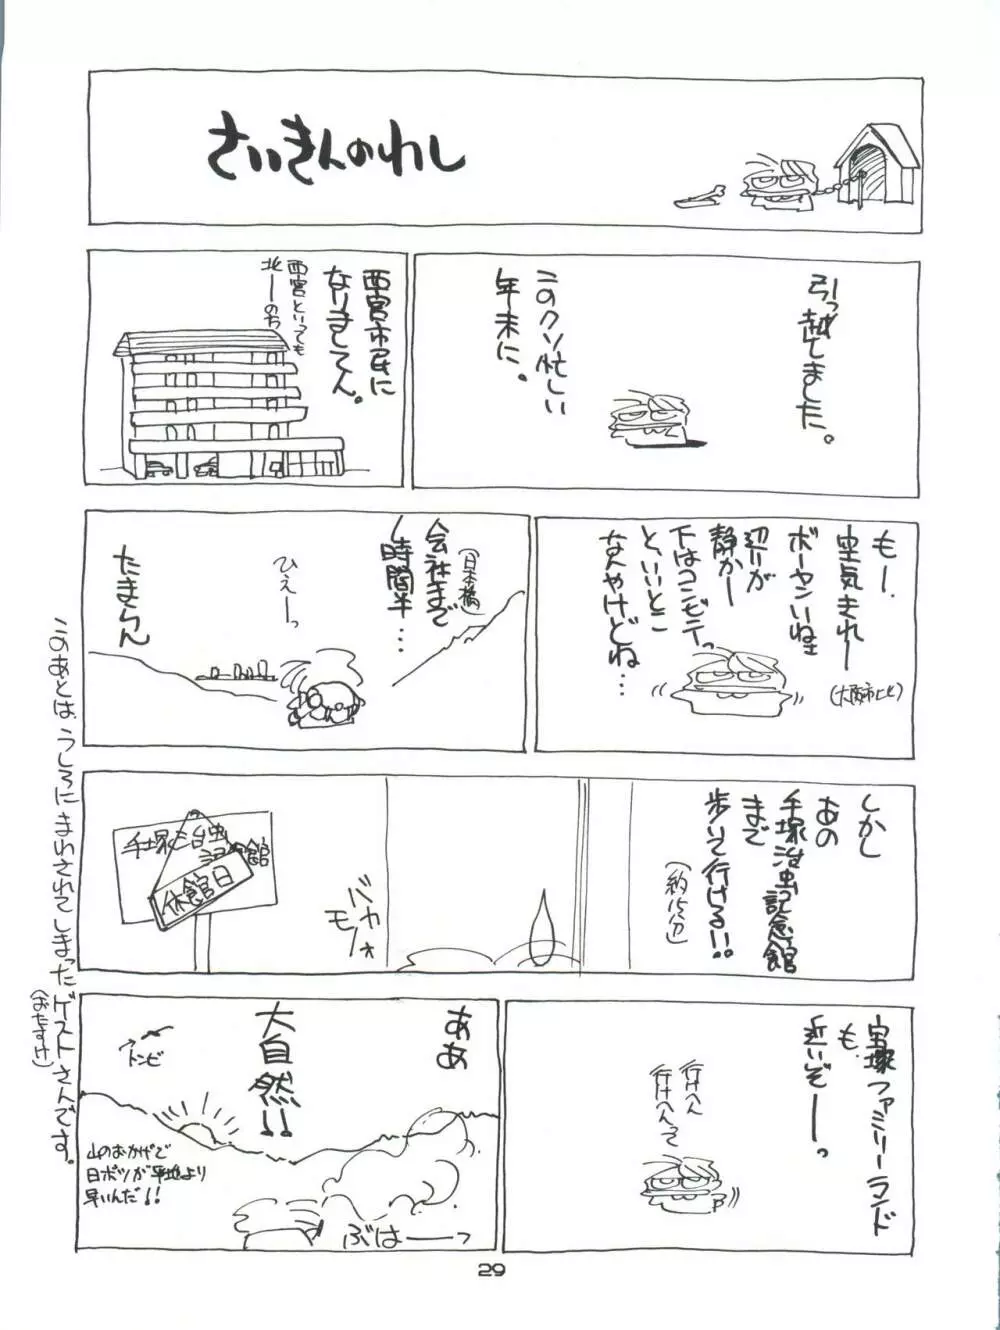 さいきんのわし
引っ越しました。
このクソ忙しい
年末に。
西宮市民に
なりましてん。
西宮といっても
北ーのち
もー、
空気きれー
ボーヤンいねェ
辺りが
静かー
下はコンビニでっ
と、いいとこ
なんやけどね…
(大阪市比)
会社まで
(日本橋)
1時間半…
ひえーっ
たまらん
しかし
あの
手塚治虫記念館
まで
歩いて行ける!!
(約15分)
バカ
モノォ
手塚治虫
記念館
休館日
宝塚ファミリーランド
も、
近いぞーっ。
行けへん
行けへんって
ああ
大自然!!
→トンビ
山のおかげで
日ボツが平地より
早いんだ!!
ぶはーっ
このあとは、うしろにまわされてしまったゲストさんです。
(おたすけ)
29